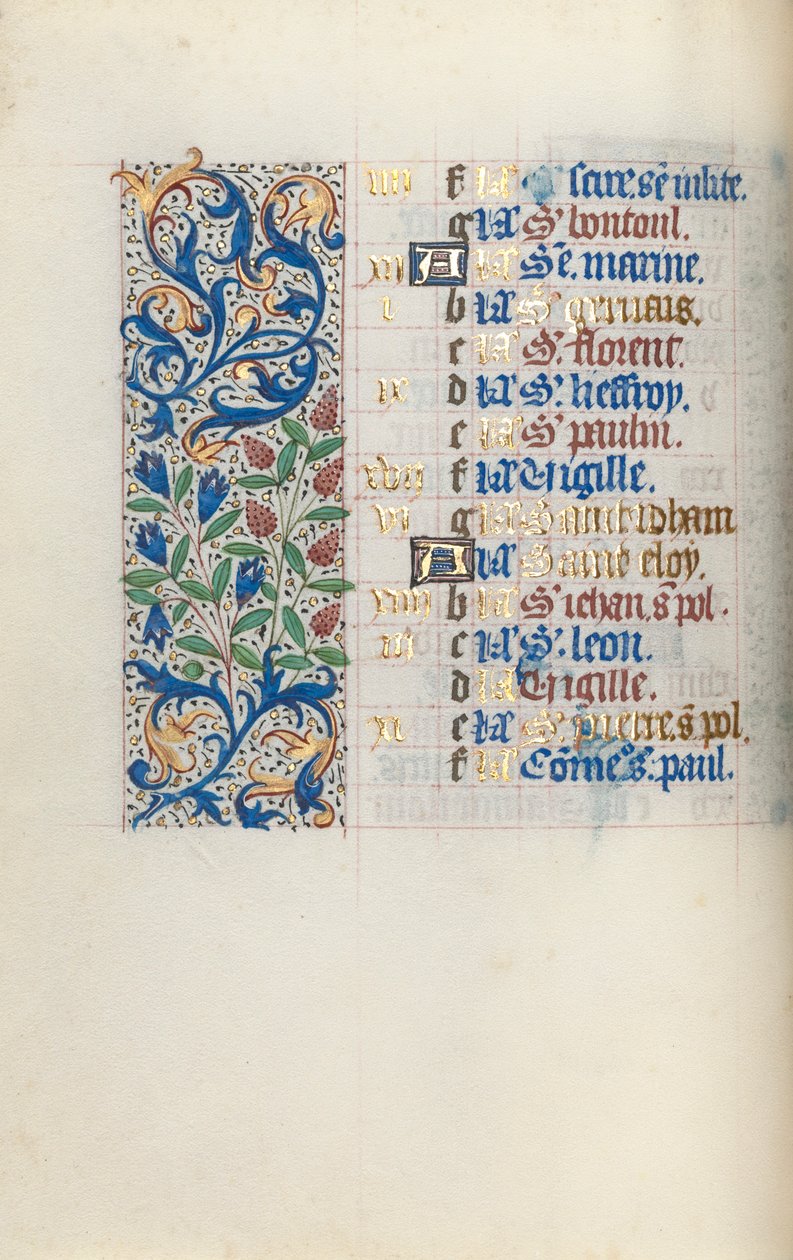 iiii f kł scire. sē iulite.
g kł S' bontoul.
xii A kł Sē. marine.
i b kł S' geruais.
c kł S'. florent.
ix d kł S'. lieffroy.
e kł S' paulin.
xvii f kł Uigille.
vi g kł Saint Iohan
A kł Saint eloy.
xiiii b kł S' iehan. s̄ pol.
iii c kł S'. leon.
d kł Uigille.
xi e kł S' pierre. s̄ pol.
f kł Cōme° s. paul.